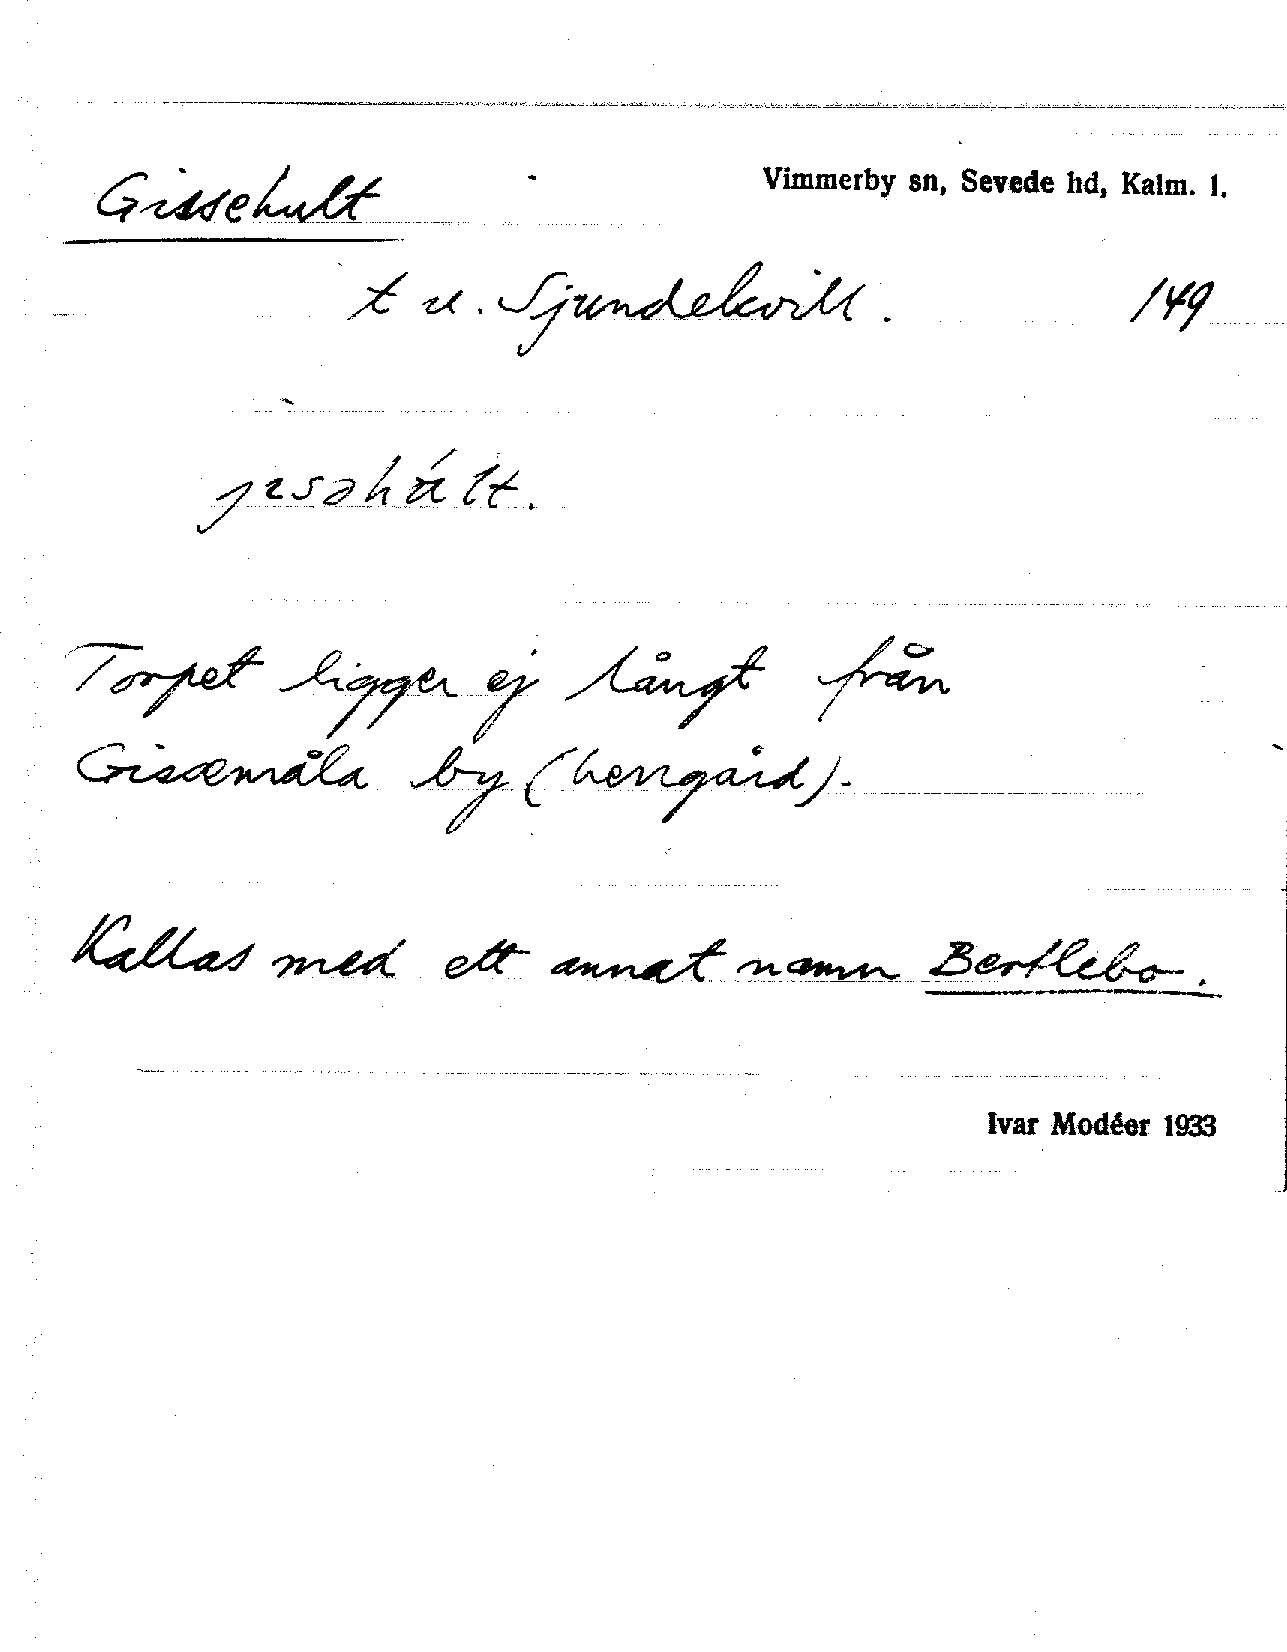 Gissehult
Vimmerby sn, Sevede hd, Kalm. l.
t u. Sjundekvill. 149
jɪsəhúlt.
Torpet ligger ej långt från
Gissemåla by (herrgård).
Kallas med ett annat namn Bertlebo.
Ivar Modéer 1933